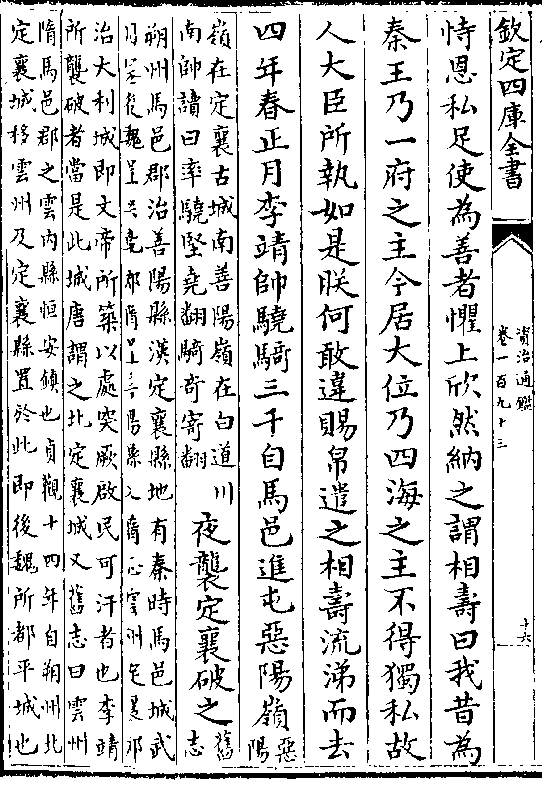 欽定四庫全書
資治通鑑
卷一百九十三
十六
恃恩私足使為善者懼上欣然納之謂相壽曰我昔為
秦王乃一府之主今居大位乃四海之主不得獨私故
人大臣所執如是朕何敢違賜帛遣之相壽流涕而去
四年春正月李靖帥驍騎三千自馬邑進屯惡陽嶺惡陽
嶺在定襄古城南善陽嶺在白道川
南帥讀曰率驍堅堯翻騎奇寄翻
夜襲定襄破之舊志
朔州馬邑郡治善陽縣漢定襄縣地有秦時馬邑城武
治大利城即文帝所築以處突厥啟民可汗者也李靖
所襲破者當是此城唐謂之北定襄城又舊志曰雲州
隋馬邑郡之雲内縣恒安鎮也貞觀十四年自朔州北
定襄城移雲州及定襄縣置於此即後魏所都平城也